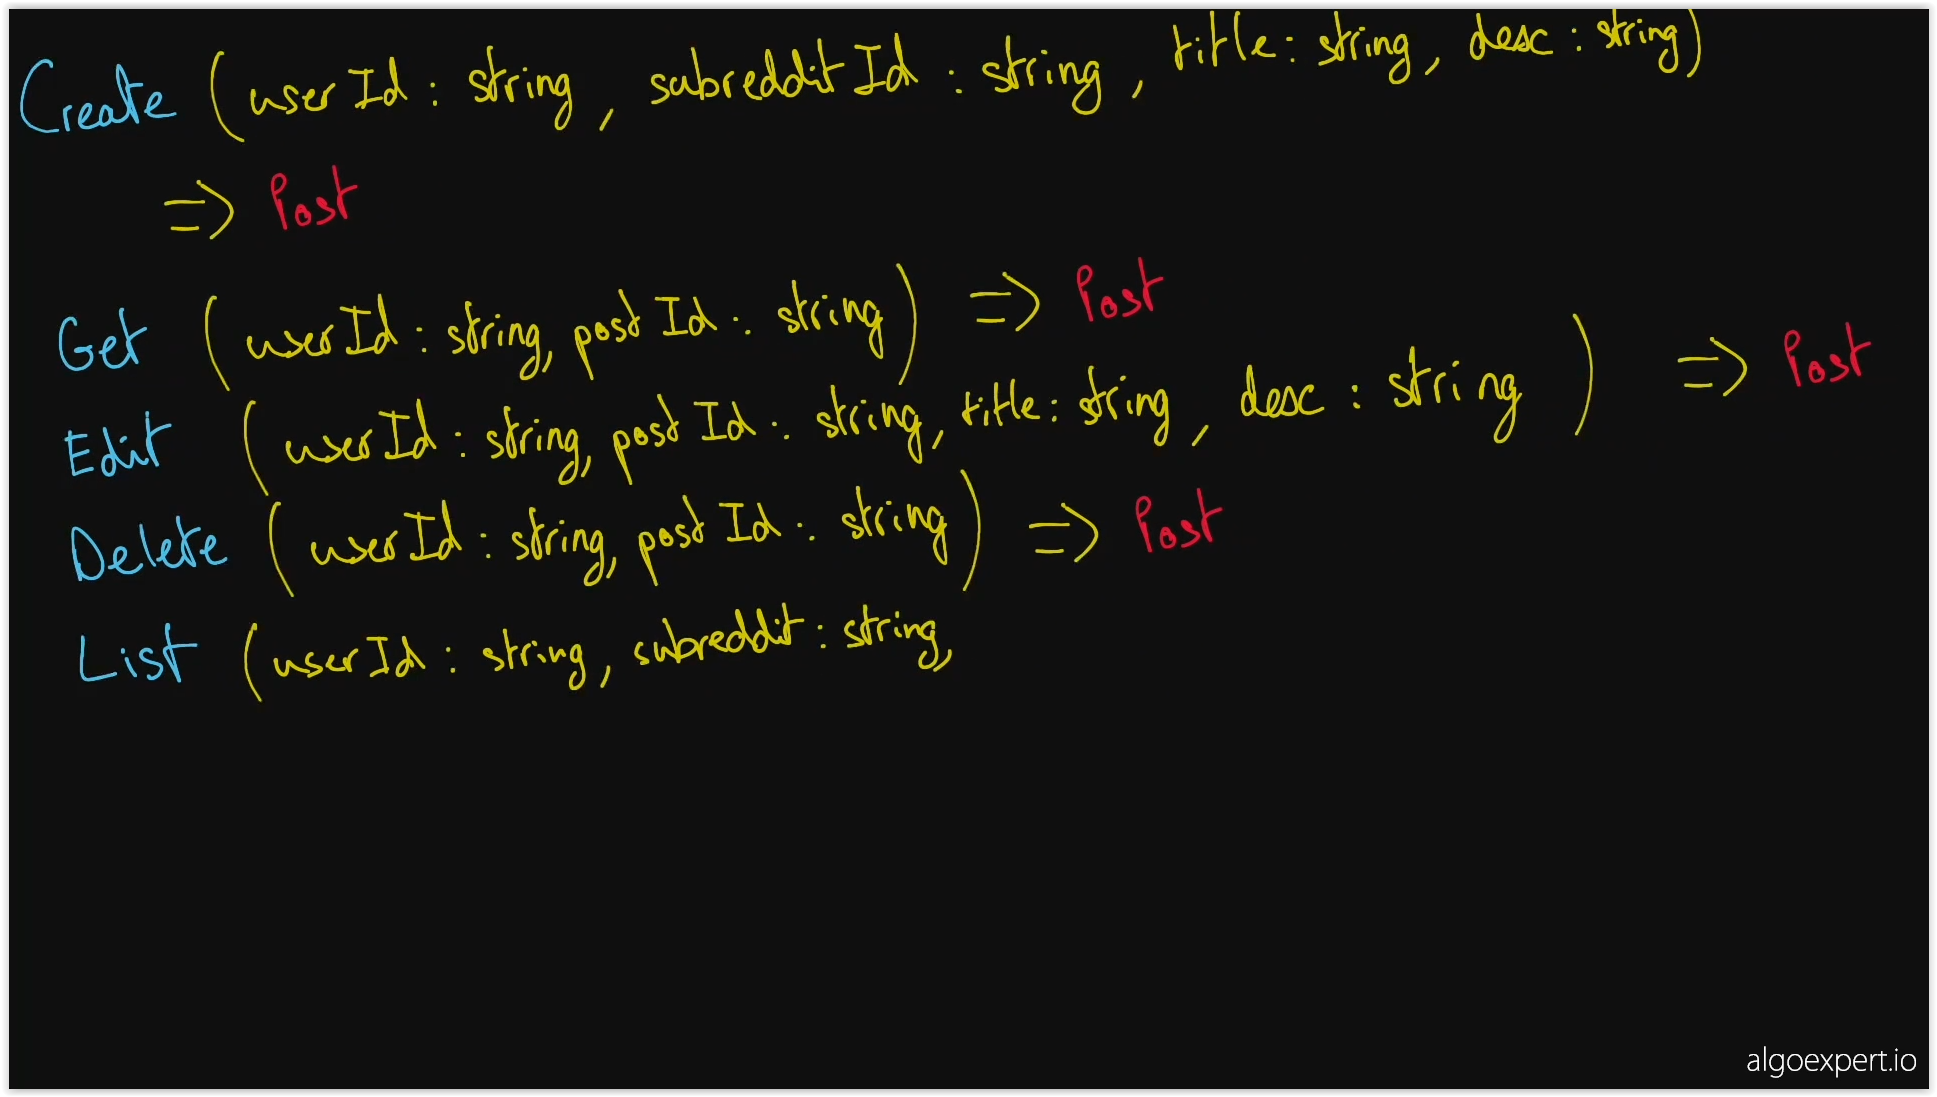 Create (userId : string, subredditId : string, title : string, desc : string)
=> Post
Get (userId : string, postId : string) => Post
Edit (userId : string, postId : string, title : string, desc : string) => Post
Delete (userId : string, postId : string) => Post
List (userId : string, subreddit : string,
algoexpert.io